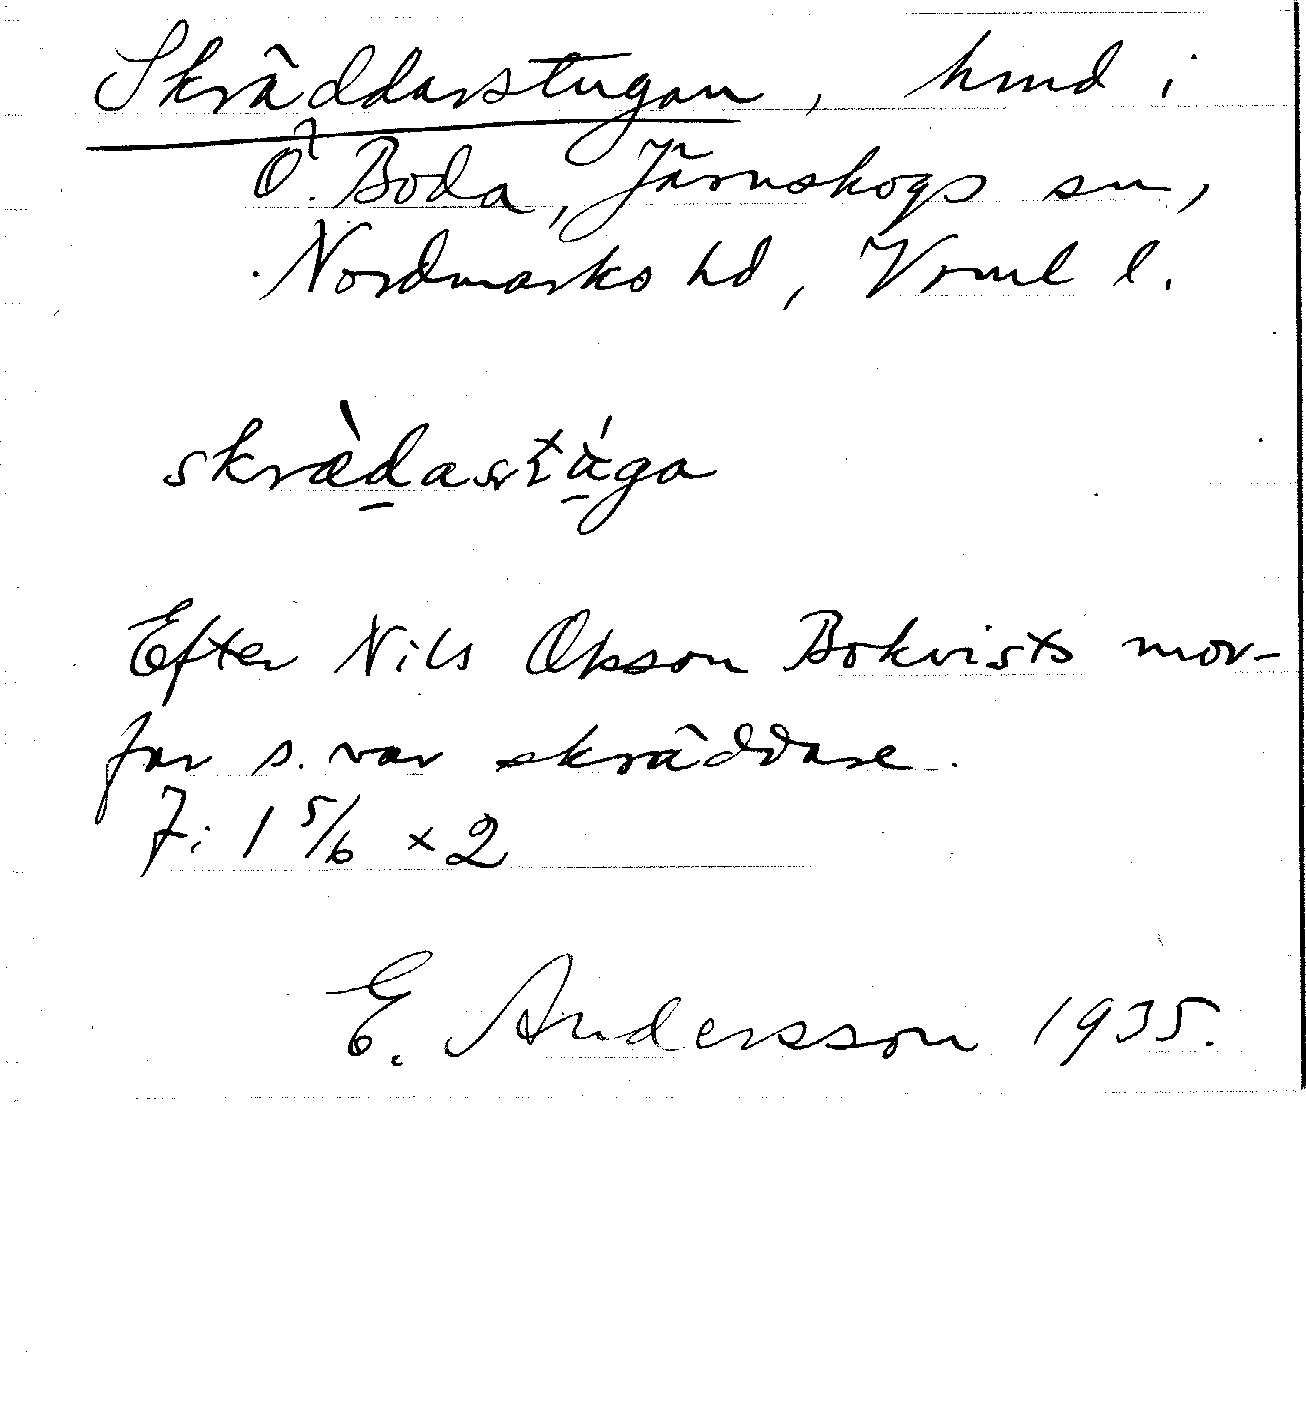 Skräddarstugan, hmd i
Ö. Boda, Järnskogs sn,
Nordmarks hd, Vrml l.
skræ̀dastá̤ga
Efter Nils Olsson Bokvists mor-
far s. var skräddare.
J: 1 5/6 × 2
E. Andersson 1935.